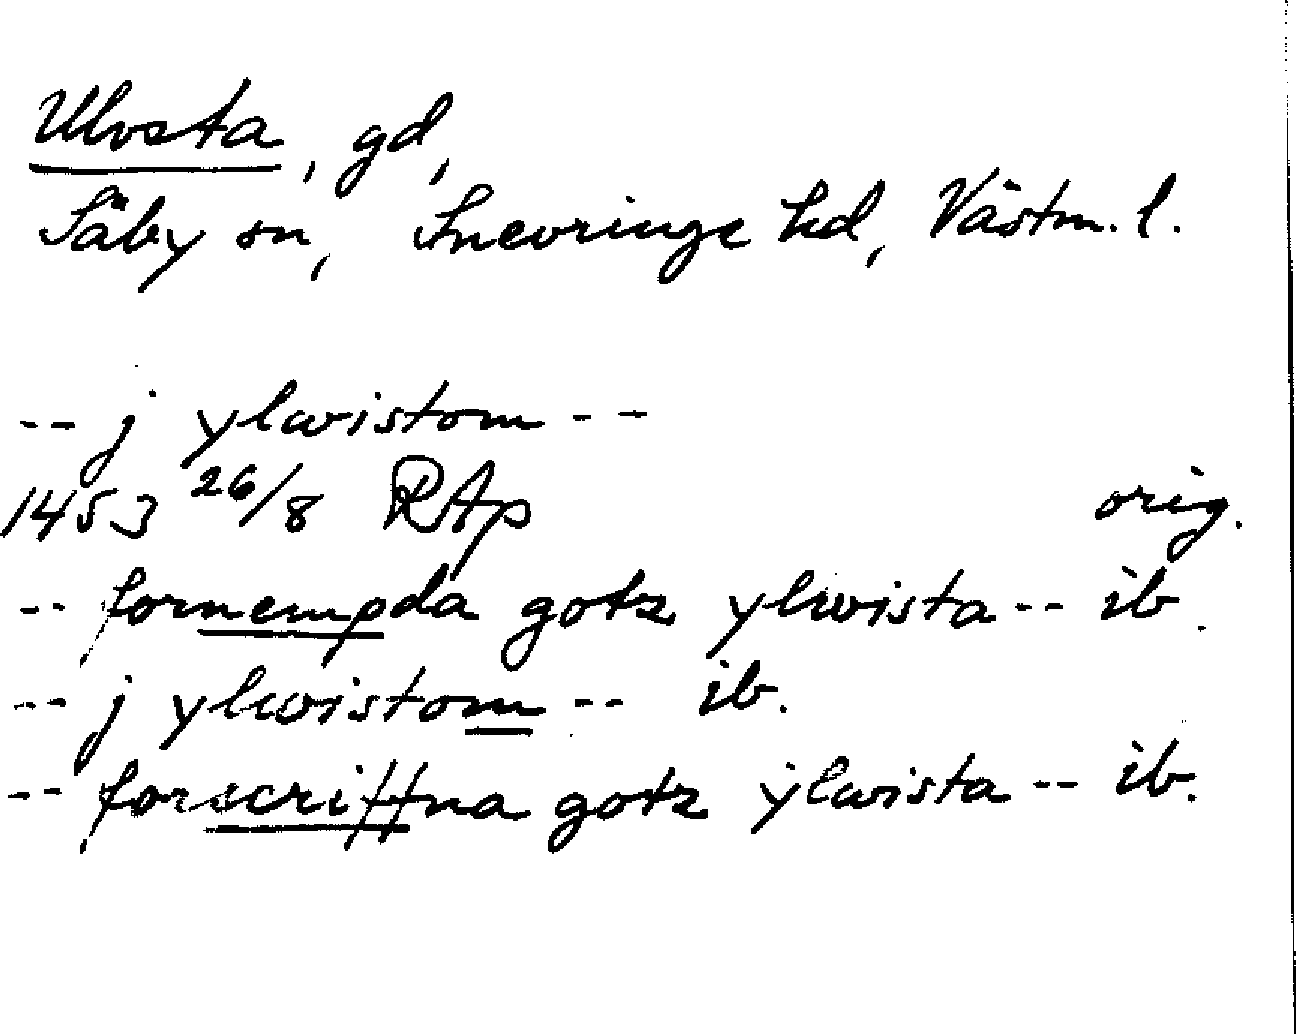 Ulvsta, gd,
Säby sn, Snevringe hd, Västm. l.
-- j ylwistom --
1453 26/8 RAp orig.
-- fornempda gotz ylwista -- ib.
-- j ylwistom -- ib.
-- forscriffna gotz ylwista -- ib.